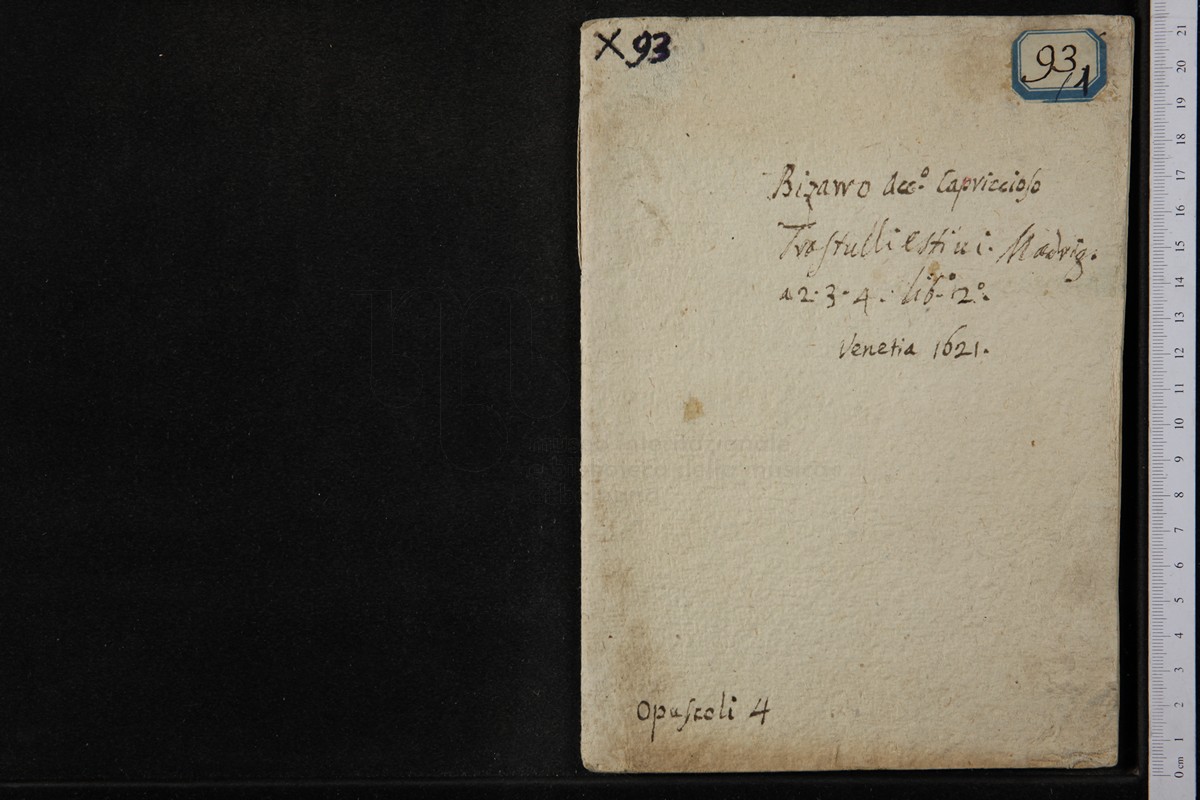 X 93
93/1
Bizarro Acc.º Capriccioso
Trastulli estiui. Madrig.
a 2. 3. 4. lib.º 2º.
Venetia 1621.
museo internazionale
e biblioteca della musica
di bologna
Opuscoli 4
21
20
19
18
17
16
15
14
13
12
11
10
9
8
7
6
5
4
3
2
1
0 cm